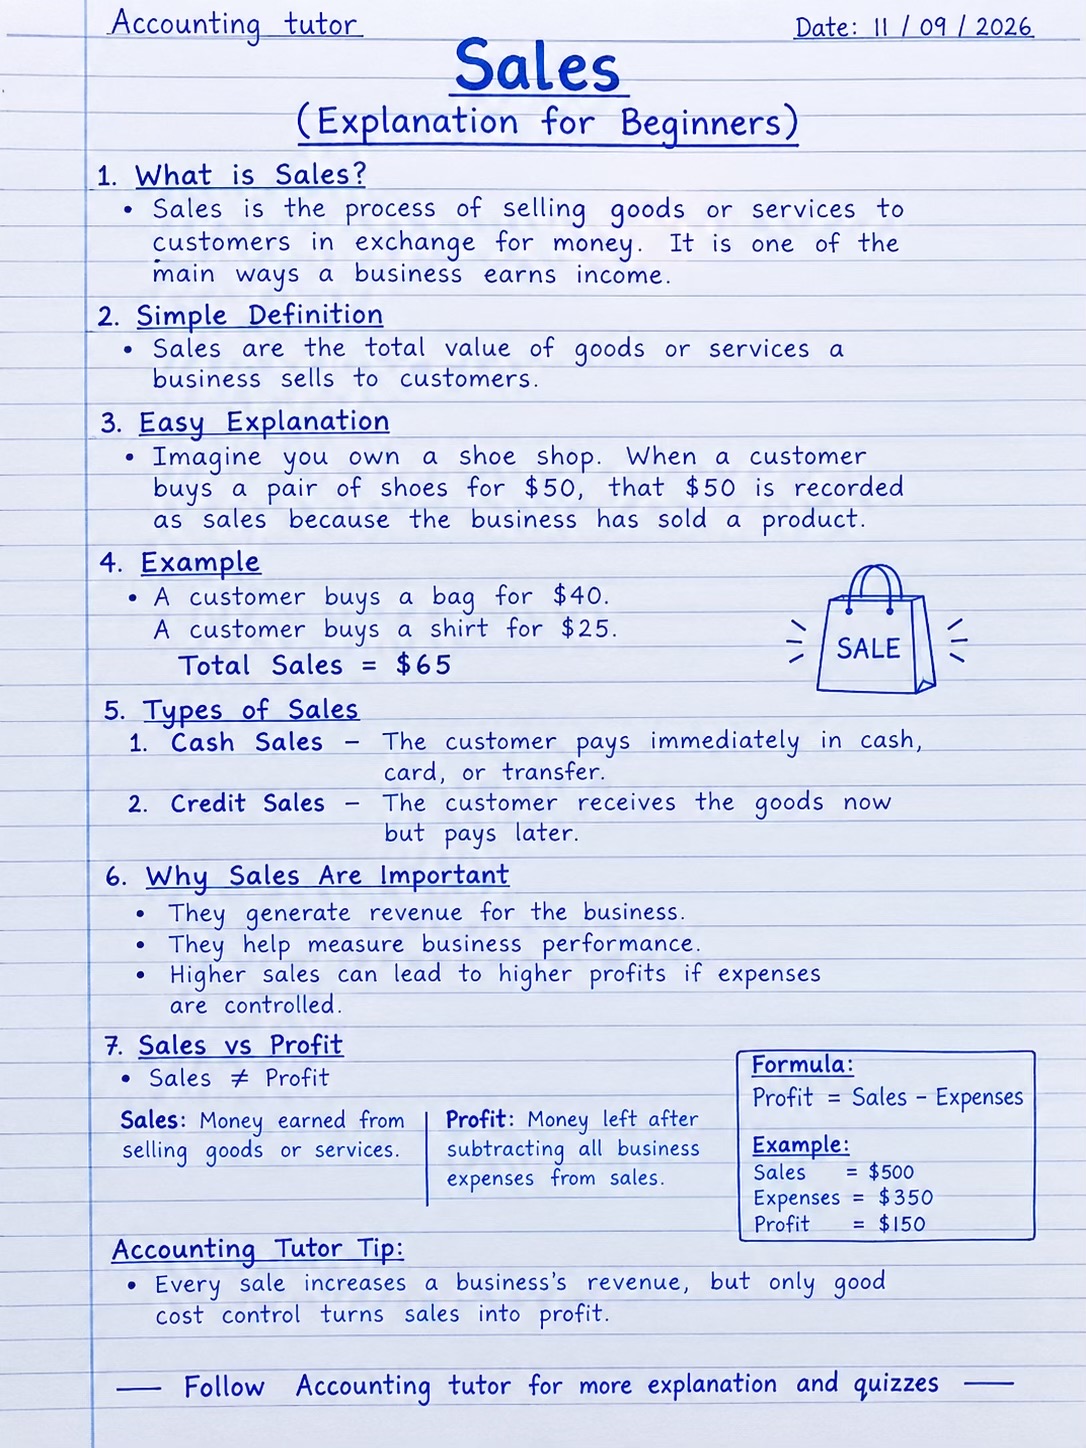 Accounting tutor
Date: 11 / 09 / 2026
Sales
(Explanation for Beginners)
1. What is Sales?
• Sales is the process of selling goods or services to
customers in exchange for money. It is one of the
main ways a business earns income.
2. Simple Definition
• Sales are the total value of goods or services a
business sells to customers.
3. Easy Explanation
• Imagine you own a shoe shop. When a customer
buys a pair of shoes for $50, that $50 is recorded
as sales because the business has sold a product.
4. Example
• A customer buys a bag for $40.
A customer buys a shirt for $25.
Total Sales = $65
SALE
5. Types of Sales
1. Cash Sales – The customer pays immediately in cash,
card, or transfer.
2. Credit Sales – The customer receives the goods now
but pays later.
6. Why Sales Are Important
• They generate revenue for the business.
• They help measure business performance.
• Higher sales can lead to higher profits if expenses
are controlled.
7. Sales vs Profit
• Sales ≠ Profit
Sales: Money earned from
selling goods or services.
Profit: Money left after
subtracting all business
expenses from sales.
Formula:
Profit = Sales – Expenses
Example:
Sales = $500
Expenses = $350
Profit = $150
Accounting Tutor Tip:
• Every sale increases a business's revenue, but only good
cost control turns sales into profit.
— Follow Accounting tutor for more explanation and quizzes —